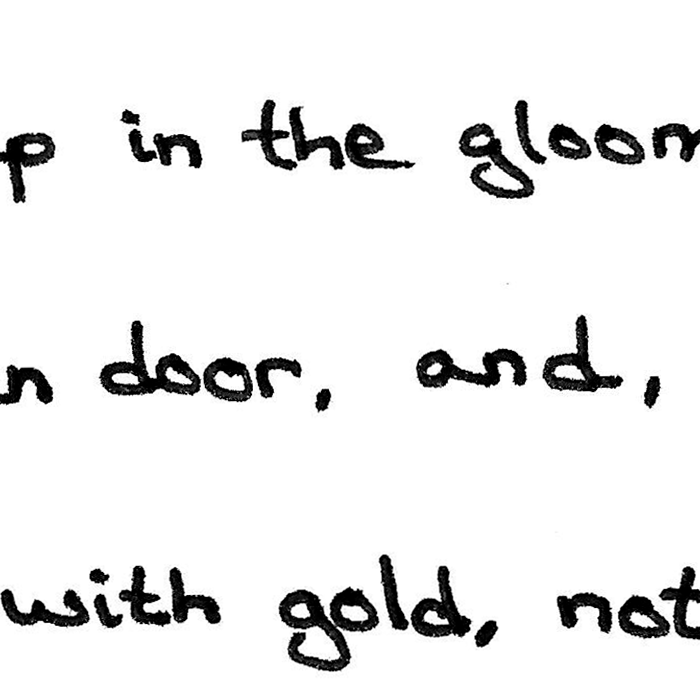 p in the gloom
n door, and,
with gold, not